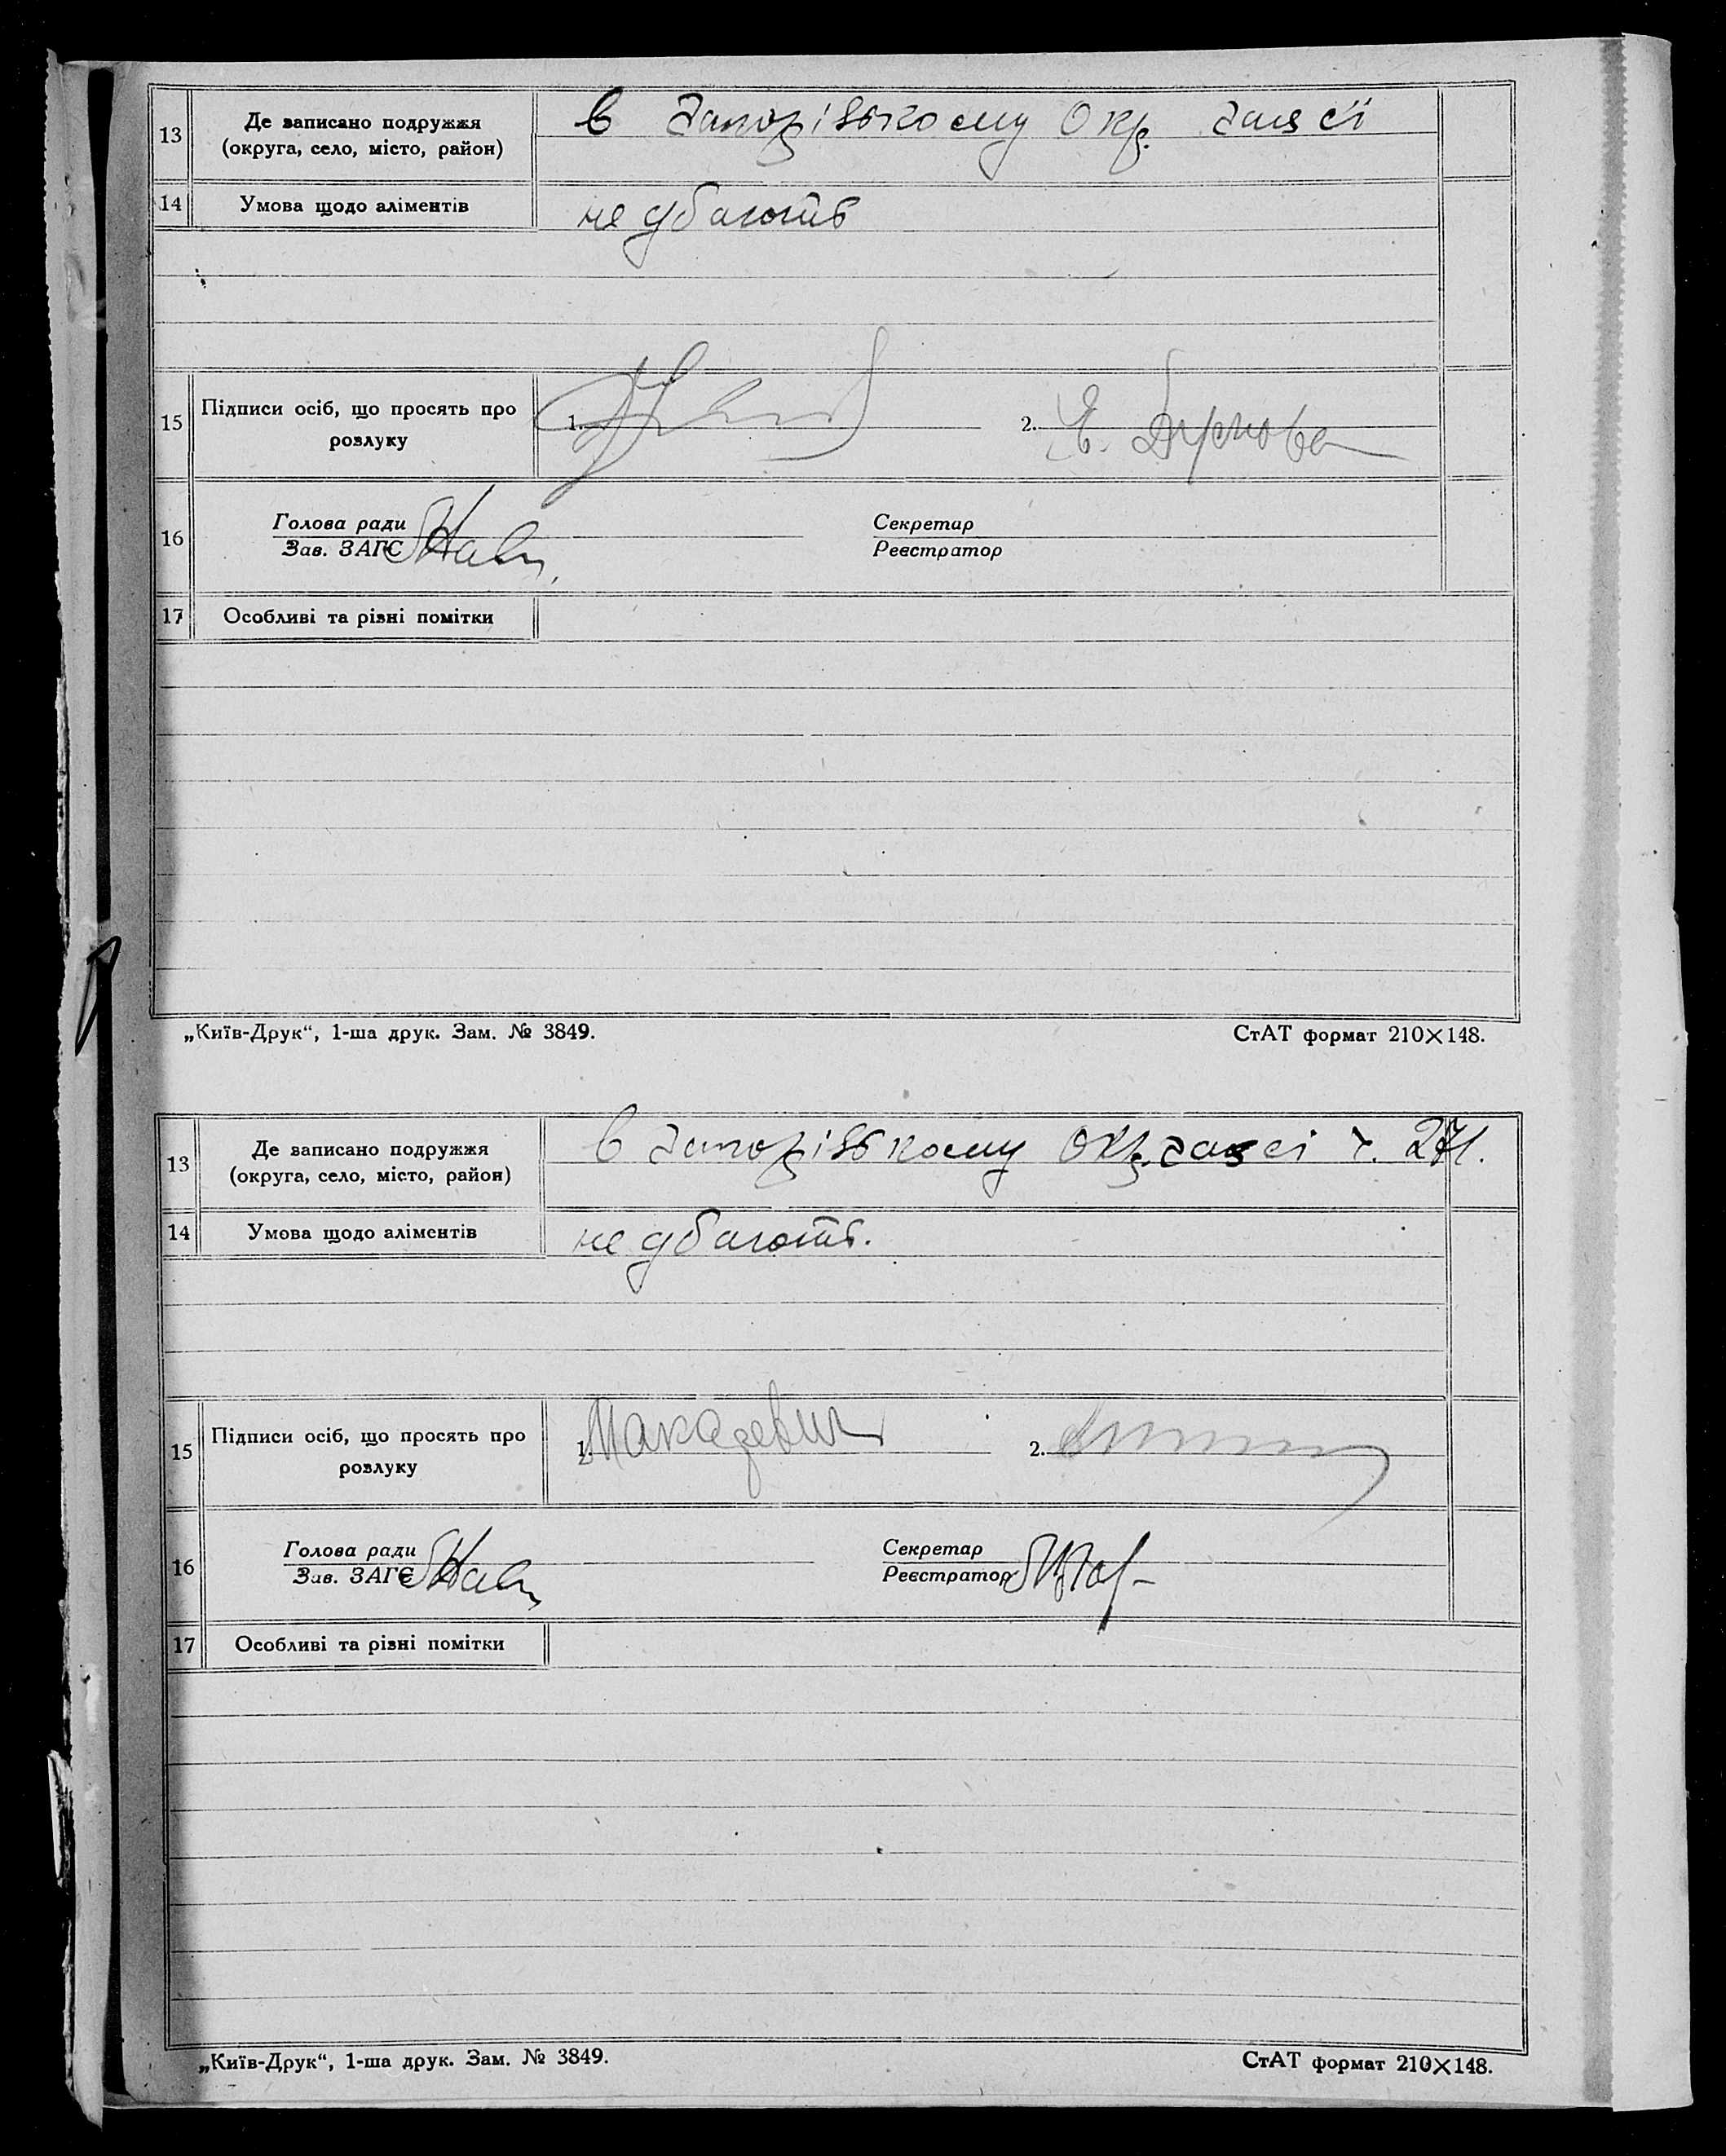 13
Де записано подружжя
(округа, село, місто, район)
в Запорізькому Окр. Загсі
14
Умова щодо аліментів
не дбають
15
Підписи осіб, що просять про
розлуку
1.
2. Є.
16
Голова ради
Зав. ЗАГС
Секретар
Реєстратор
17
Особливі та різні помітки
„Київ-Друк“, 1-ша друк. Зам. № 3849.
СтАТ формат 210×148.
13
Де записано подружжя
(округа, село, місто, район)
в Запорізькому Окр. Загсі
14
Умова щодо аліментів
не дбають.
15
Підписи осіб, що просять про
розлуку
1.
2.
16
Голова ради
Зав. ЗАГС
Секретар
Реєстратор
17
Особливі та різні помітки
„Київ-Друк“, 1-ша друк. Зам. № 3849.
СтАТ формат 210×148.